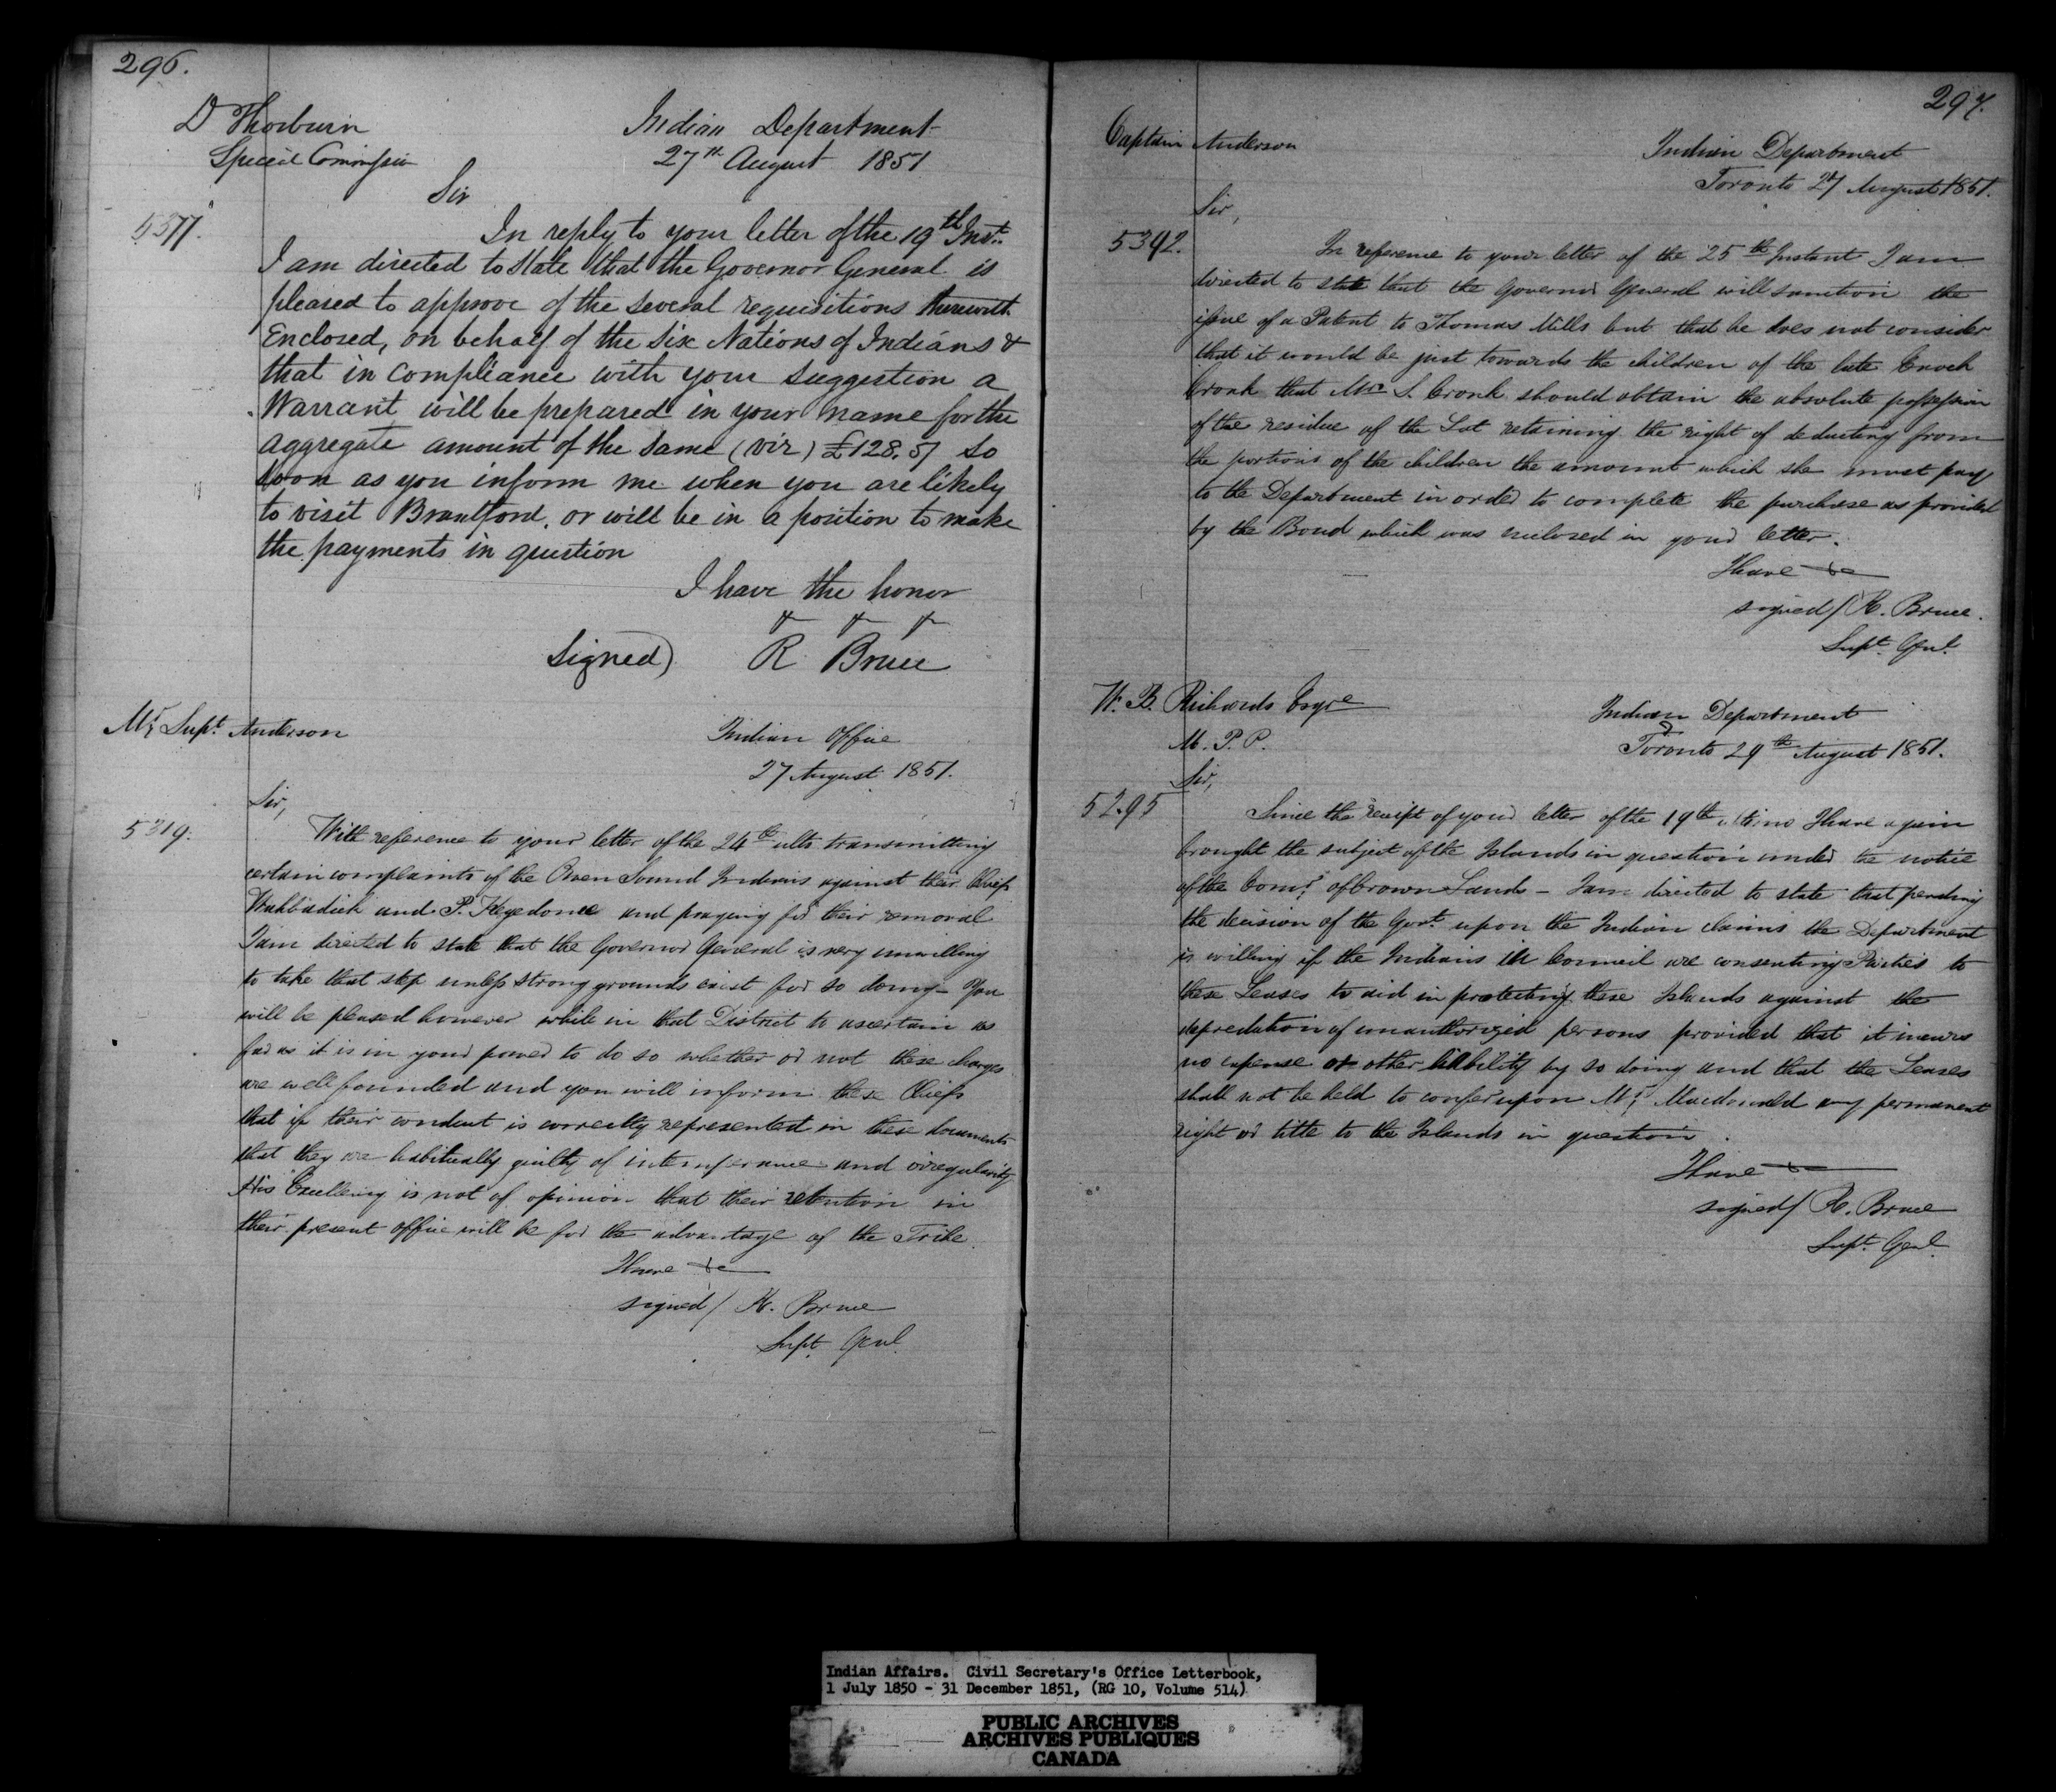 296.
D Thorburn
Special Commissr
Indian Department
27th August 1851
Sir
5377.
In reply to your letter of the 19th Inst.
I am directed to State that the Governor General is
pleased to approve of the several requisitions therewith
Enclosed, on behalf of the Six Nations of Indians &
that in compliance with your suggestion a
Warrant will be prepared in your name for the
aggregate amount of the same (viz) £128.5/ so
soon as you inform me when you are likely
to visit Brantford, or will be in a position to make
the payments in question
I have the honor
& & &
Signed) R Bruce
Mr. Supt. Anderson
Indian Office
27 August 1851.
Sir,
5319.
With reference to your letter of the 24th ulto transmitting
certain complaints of the Owen Sound Indians against their Chiefs
Wahbadick and P. Kegedonce and praying for their removal
I am directed to state that the Governor General is very unwilling
to take that step unless strong grounds exist for so doing – You
will be pleased however while in that District to ascertain as
far as it is in your power to do so whether or not these charges
are well founded and you will inform these Chiefs
that if their conduct is correctly represented in these documents
that they are habitually guilty of intemperance and irregularity
His Excellency is not of opinion that their retention in
their present office will be for the advantage of the Tribe
I have &c
signed/ R. Bruce
Supt. Genl.
297.
Captain Anderson
Indian Department
Toronto 27 August 1851.
Sir,
5392.
In reference to your letter of the 25th Instant I am
directed to state that the Governor General will sanction the
issue of a Patent to Thomas Mills but that he does not consider
that it would be just towards the children of the late Enoch
Cronk that Mrs S. Cronk should obtain the absolute possession
of the residue of the Lot retaining the right of deducting from
the portions of the children the amount which she must pay
to the Department in order to complete the purchase as provided
by the Bond which was enclosed in your letter.
I have &c
signed/ R. Bruce.
Supt. Genl.
W. B. Richards Esqre
M. P. P.
Indian Department
Toronto 29th August 1851.
Sir,
5295
Since the receipt of your letter of the 19th ultimo I have again
brought the subject of the Islands in question under the notice
of the Comr. of Crown Lands – I am directed to state that pending
the decision of the Govt. upon the Indian claims the Department
is willing if the Indians in Council are consenting Parties to
these Leases to aid in protecting these Islands against the
depredation of unauthorized persons provided that it incurs
no expense or other liability by so doing and that the Leases
shall not be held to confer upon Mr. Macdonald any permanent
right or title to the Islands in question.
I have &c
signed/ R. Bruce
Supt. Genl.
Indian Affairs. Civil Secretary's Office Letterbook,
1 July 1850 - 31 December 1851, (RG 10, Volume 514)
PUBLIC ARCHIVES
ARCHIVES PUBLIQUES
CANADA